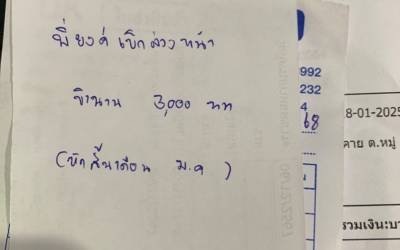 พี่ยงค์ เบิกล่วงหน้า
จำนวน 3,000 บาท
(หักสิ้นเดือน ม.ค)
992
232
4
68
8-01-2025
คาย ต.หมู่
รวมเงิน:บา